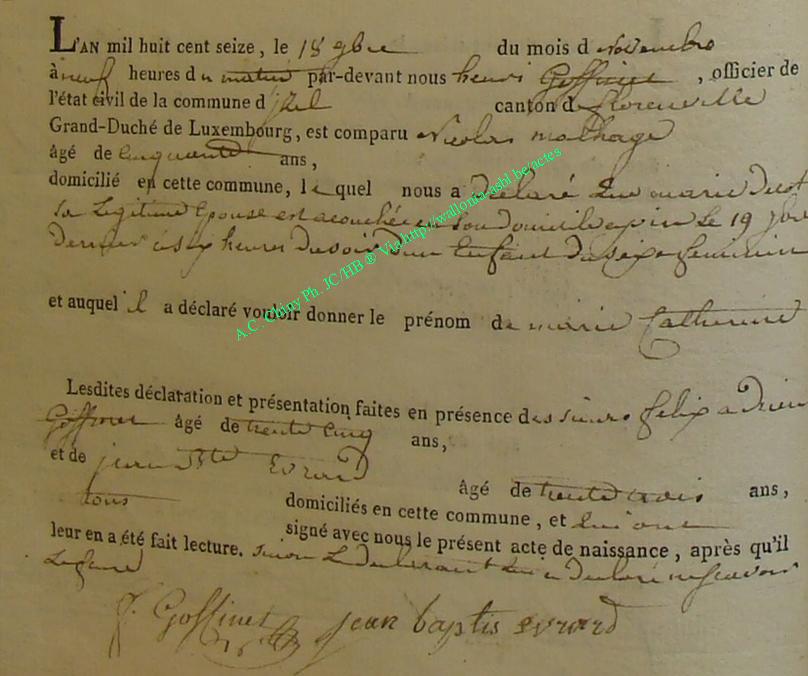 L'AN mil huit cent seize, le 18 9bre du mois d novembre
à neuf heures du matin par-devant nous henri Goffinet, officier de
l'état civil de la commune d jzel canton de florenville
Grand-Duché de Luxembourg, est comparu Nicolas malhage
âgé de cinquante ans,
domicilié en cette commune, le quel nous a declaré que marie
sa Legitime Epouse est acouchée en son domicile Le 19
Dernier à six heures du soir d'un Enfant du sexe feminin
et auquel il a déclaré vouloir donner le prénom de marie Catherine
Lesdites déclaration et présentation faites en présence des sieurs felix adrien
Goffinet âgé de trente cinq ans,
et de jean Bte Evrard âgé de trente trois ans,
tous domiciliés en cette commune, et qui ont
signé avec nous le présent acte de naissance, après qu'il
leur en a été fait lecture. sinon Le declarant qui a Declaré ne scavoir
Le faire
f. Goffinet jean baptis evrard
A.C. Chiny Ph. JC/HB ® Via http://wallonia-asbl.be/actes